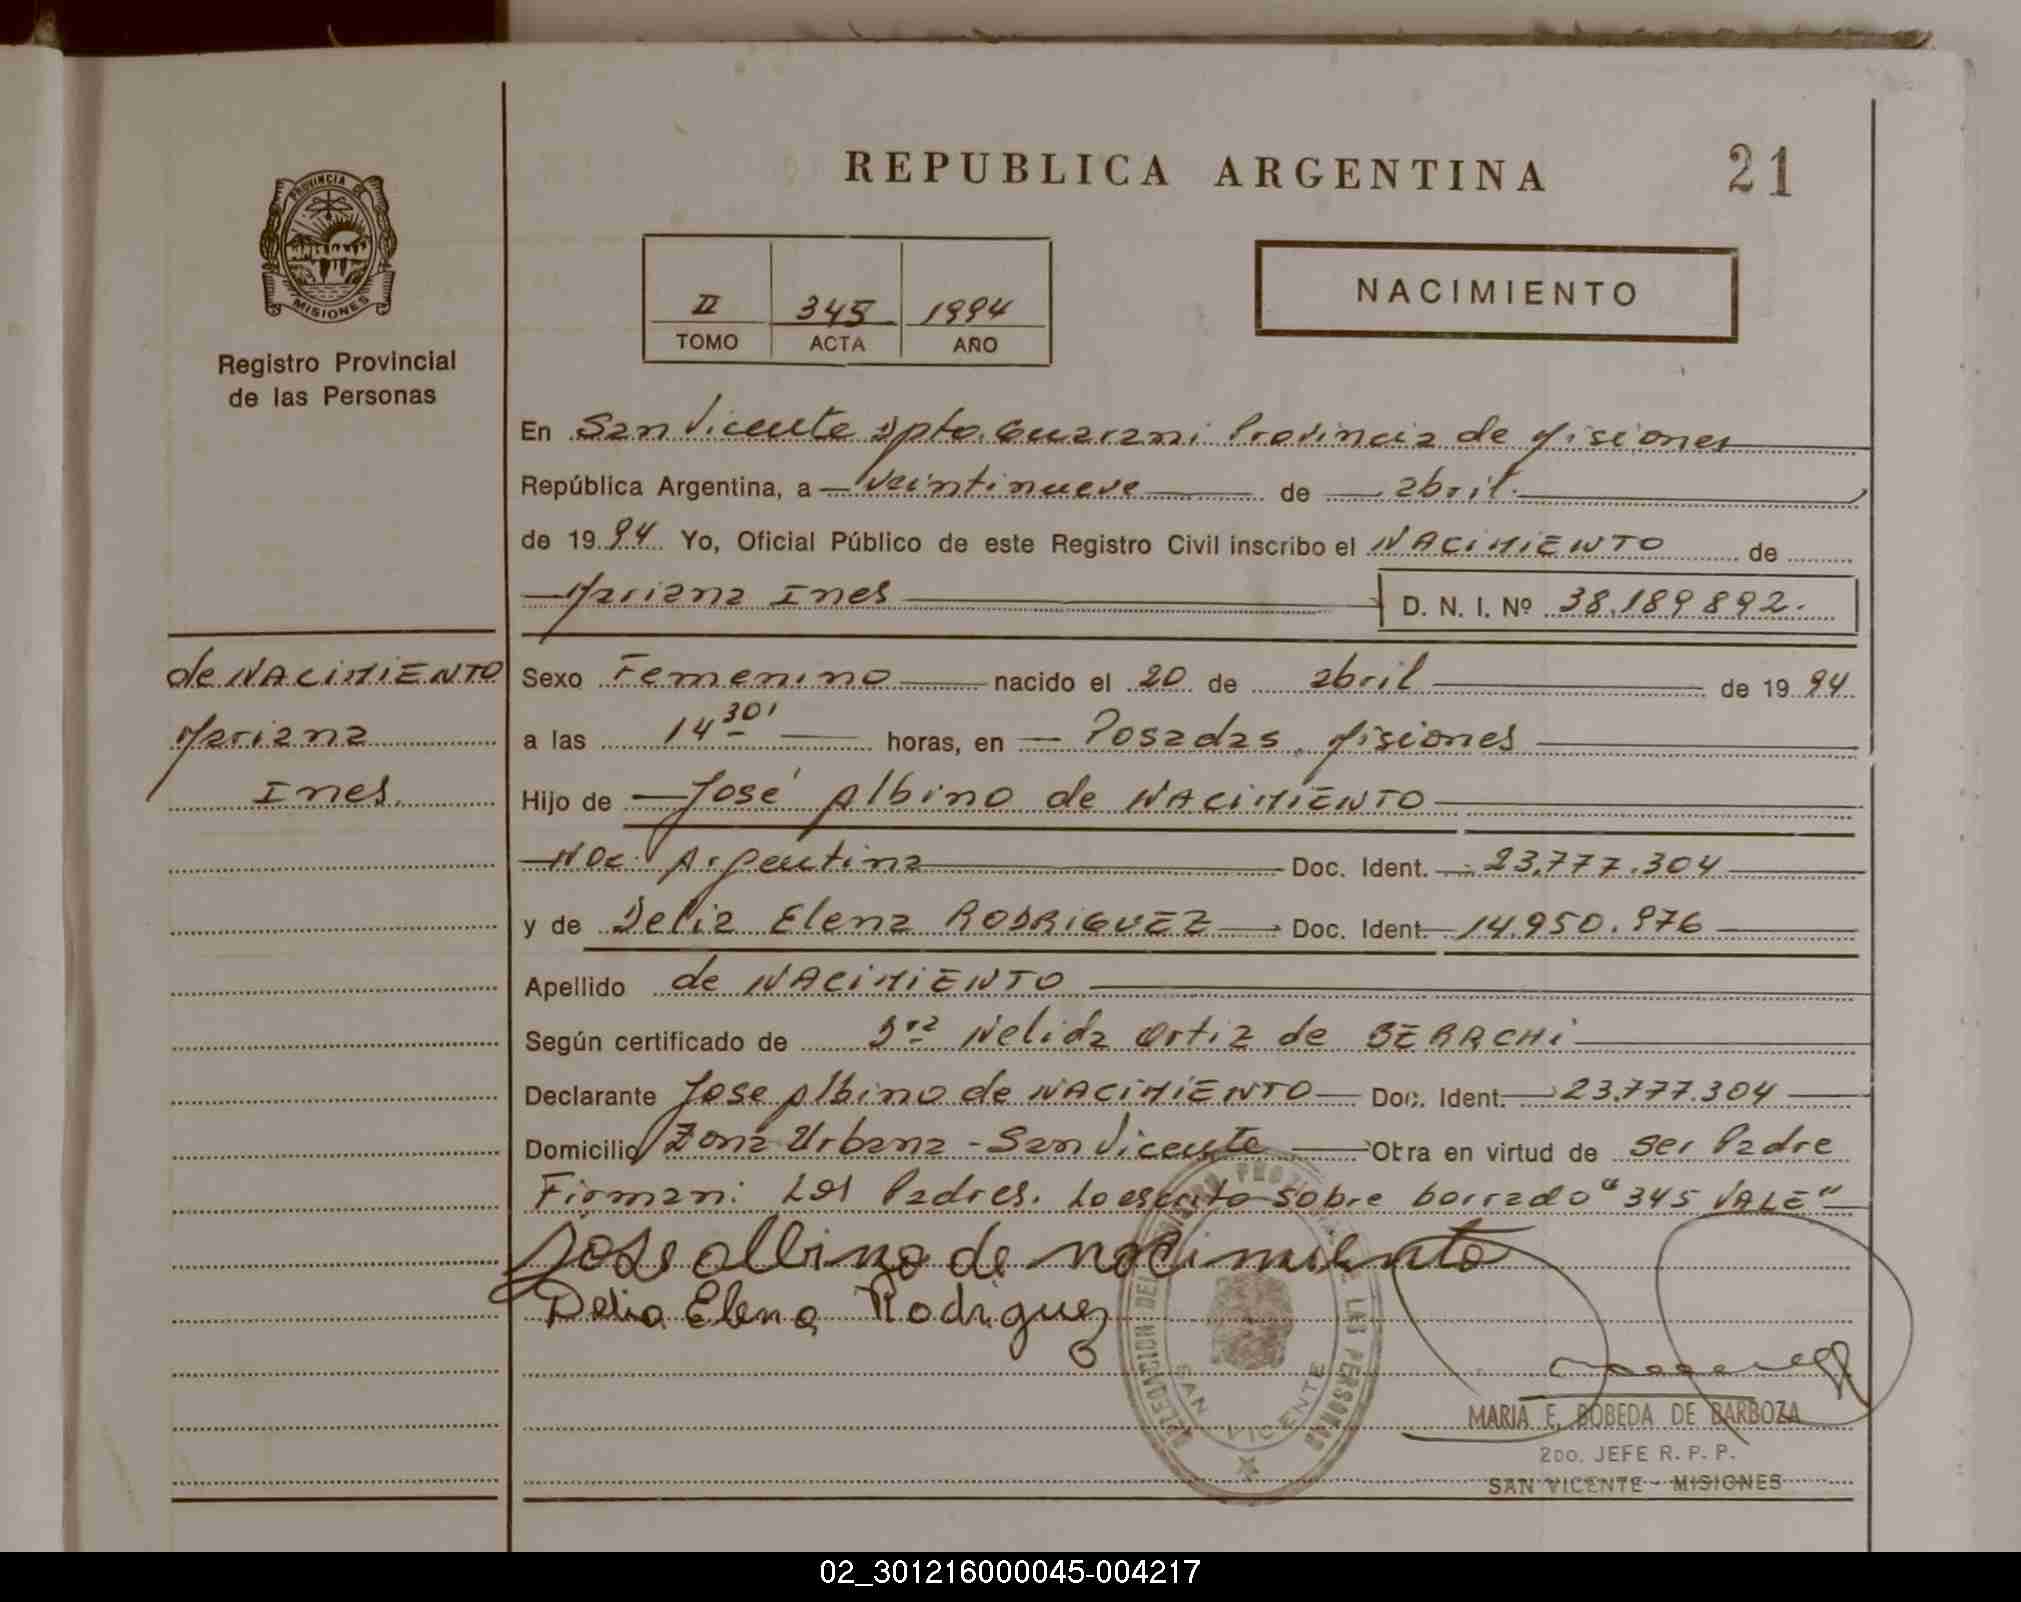 REPUBLICA ARGENTINA
21
PROVINCIA DE
MISIONES
Registro Provincial
de las Personas
II 345 1994
TOMO ACTA AÑO
NACIMIENTO
En San Vicente Dpto. Guarani Provincia de Misiones
República Argentina, a veintinueve de abril
de 19 94 Yo, Oficial Público de este Registro Civil inscribo el NACIMIENTO de
Mariana Ines D. N. I. Nº 38.189892.
de NACIMIENTO
Mariana
Ines
Sexo Femenino nacido el 20 de abril de 19 94
a las 14 30' horas, en Posadas, Misiones
Hijo de José Albino de NACIMIENTO
Nac. Argentina Doc. Ident. 23.777.304
y de Delia Elena RODRIGUEZ Doc. Ident. 14.950.976
Apellido de NACIMIENTO
Según certificado de Dra Nelida Ortiz de BERACHI
Declarante Jose Albino de NACIMIENTO Doc. Ident. 23.777.304
Domicilio Zona Urbana - San Vicente Otra en virtud de ser Padre
Firman: Los Padres. Lo escrito sobre borrado "345 VALE"
Jose albino de nacimiento
Delia Elena Rodriguez
DELEGACION DEL REGISTRO PROVINCIAL DE LAS PERSONAS
SAN VICENTE
MARIA E. BOBEDA DE BARBOZA
2DO. JEFE R. P. P.
SAN VICENTE - MISIONES
02_301216000045-004217